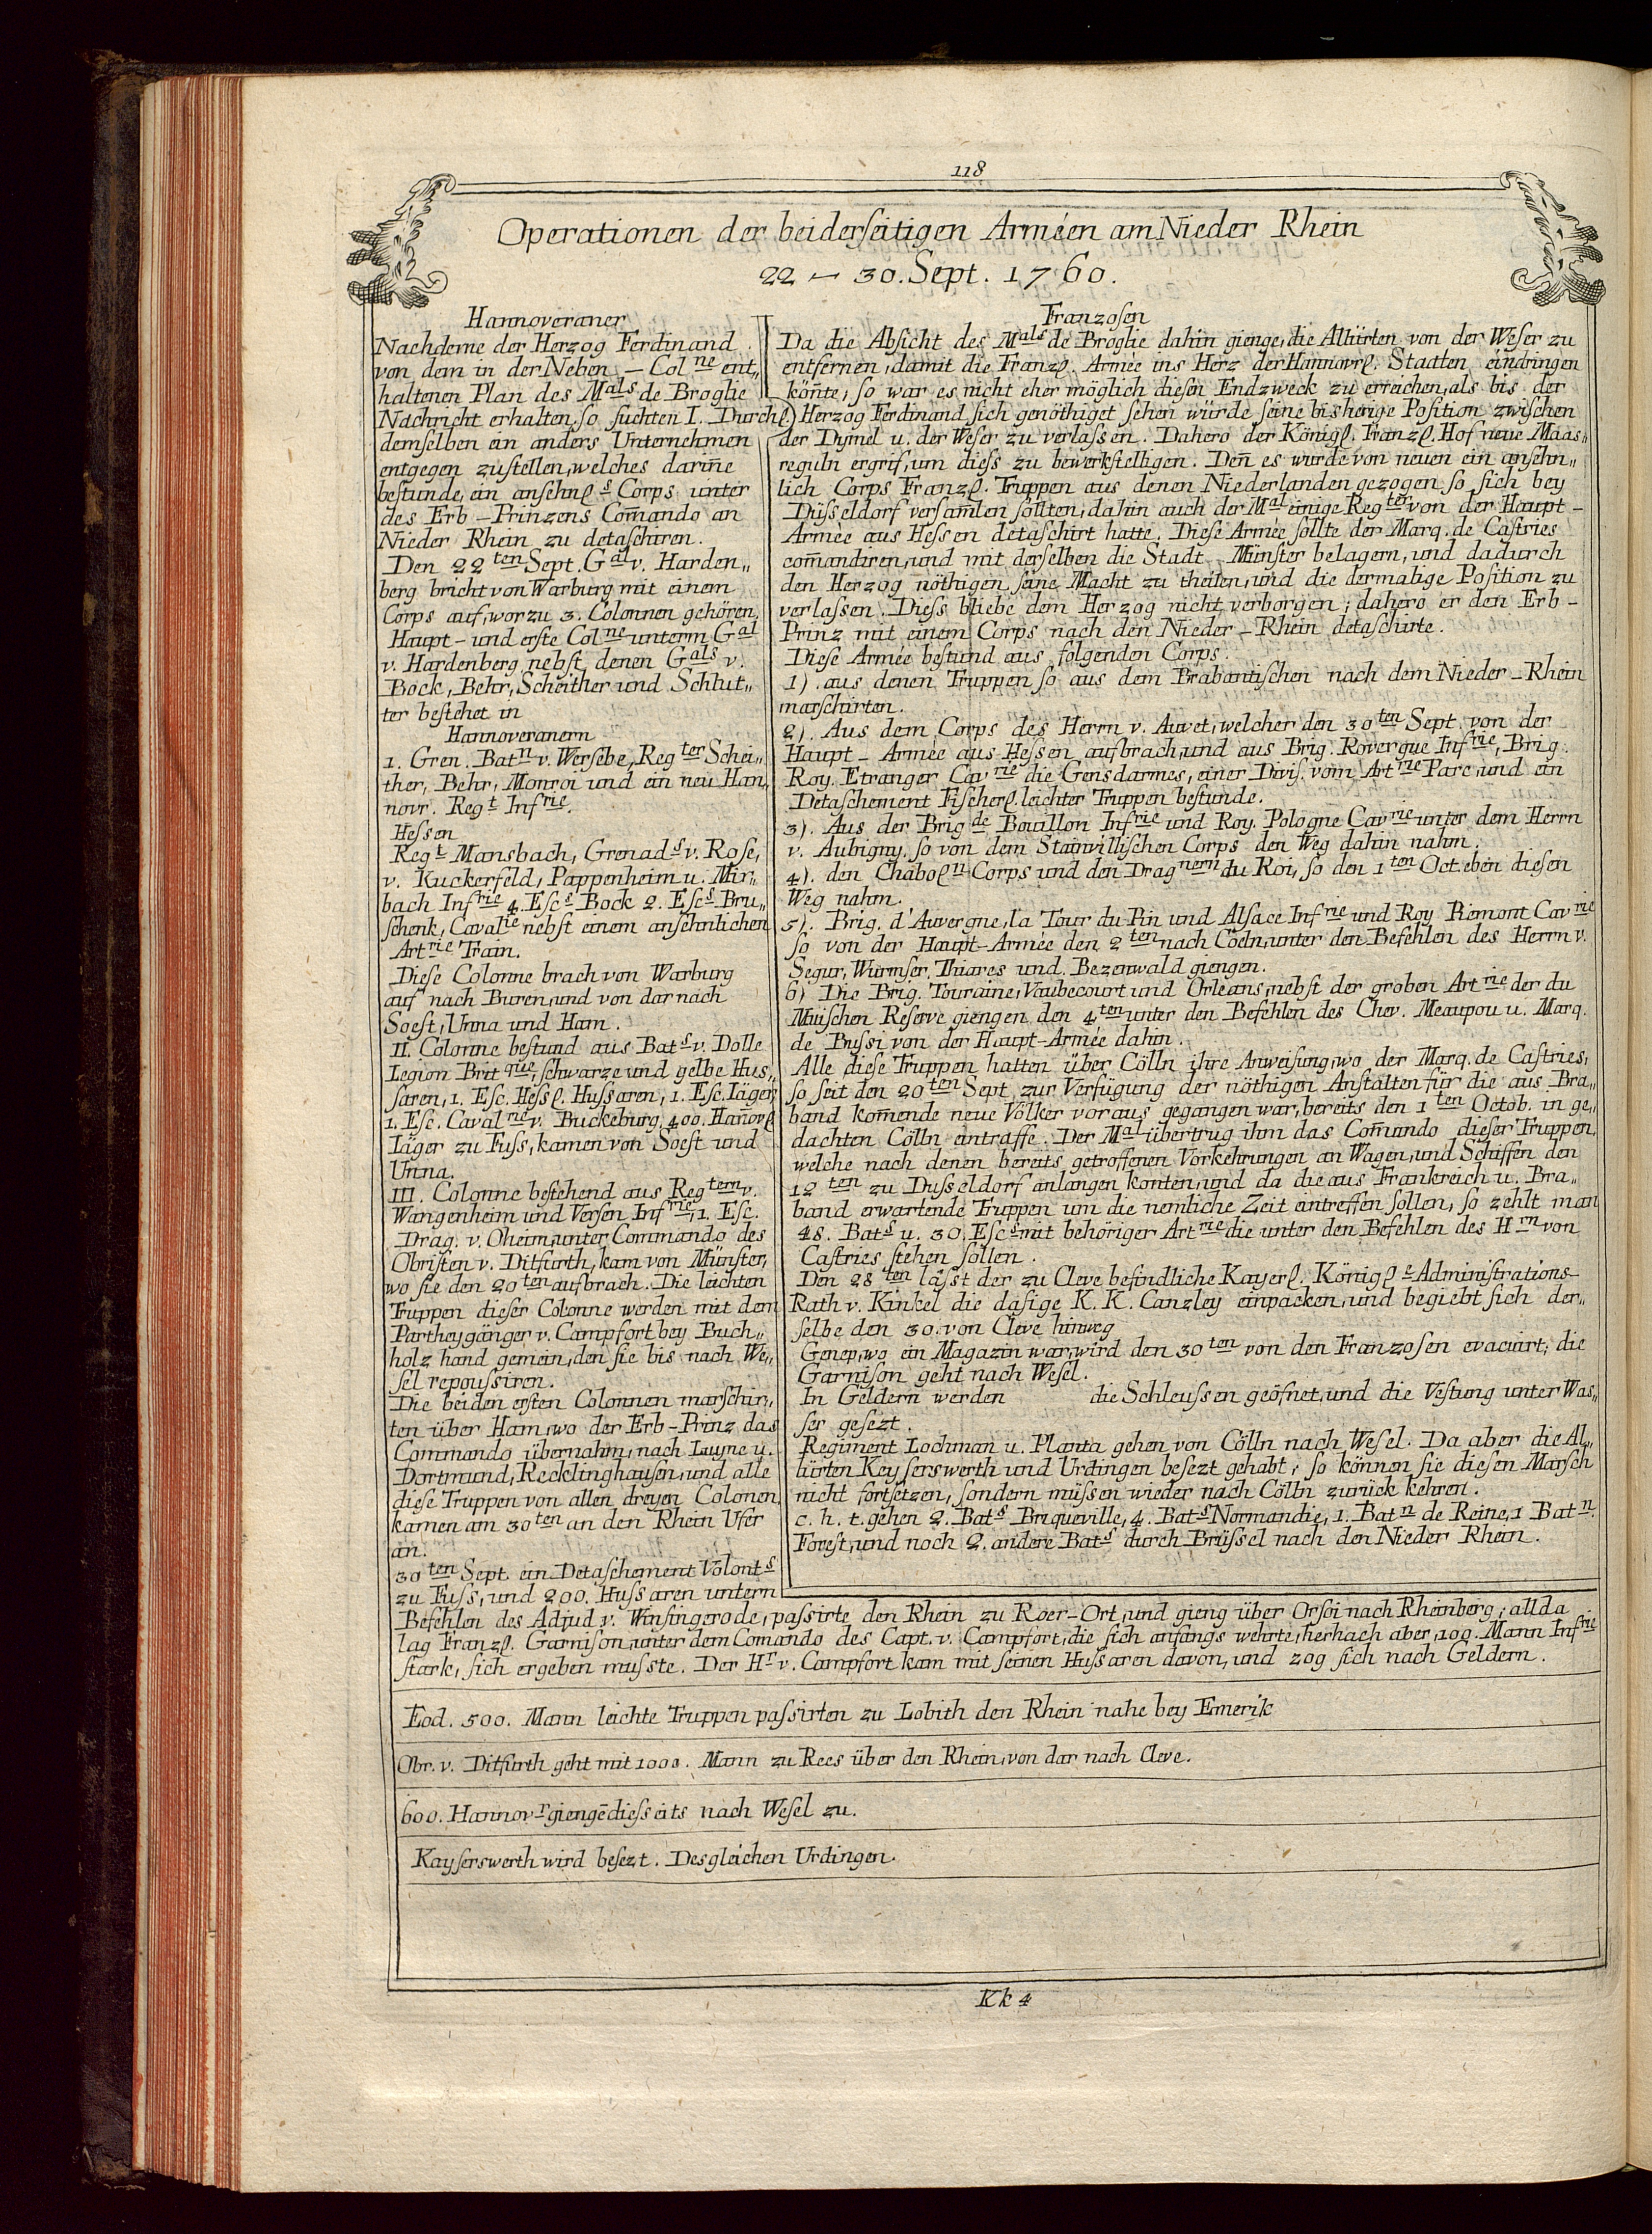 118
Operationen der beiderseitigen Arméen am Nieder Rhein
22 – 30. Sept. 1760.
Hannoveraner
Nachdeme der Herzog Ferdinand
von dem in der Neben – Col ne ent„
haltenen Plan des M als de Broglie
Nachricht erhalten, so suchten I. Durchl)
demselben ein anders Unternehmen
entgegen zustellen, welches dariñe
bestunde, ein ansehnl s Corps unter
des Erb – Prinzens Com̄ando an
Nieder Rhein zu detaschiren.
Den 22 ten Sept. G al v. Harden„
berg bricht von Warburg mit einem
Corps auf, worzu 3. Colonnen gehören.
Haupt – und erste Col ne unterm G al
v. Hardenberg nebst denen G als v.
Bock, Behr, Scheither und Schlut„
ter bestehet in
Hannoveranern
1. Gren. Bat n v. Wersebe, Reg ter Schei„
ther, Behr, Monroi und ein neu Han„
novr. Reg t Inf rie.
Hessen
Reg t Mansbach, Grenad s v. Rose,
v. Kuckerfeld, Pappenheim u. Mir„
bach Inf rie 4. Esc s Bock 2. Esc s Bru„
schenk, Caval ie nebst einem ansehnlichen
Art rie Train.
Diese Colonne brach von Warburg
auf nach Buren, und von dar nach
Soest, Unna und Ham.
II. Colonne bestund aus Bat s v. Dolle
Legion Brit que, schwarze und gelbe Hus„
saren, 1. Esc. Hessl. Hussaren, 1. Esc. Iäger,
1. Esc. Caval rie v. Buckeburg, 400. Hañovl
Iäger zu Fuss, kamen von Soest und
Unna.
III. Colonne bestehend aus Reg tern v.
Wangenheim und Versen Inf rie, 1. Esc.
Drag. v. Oheim, unter Commando des
Obristen v. Ditfurth, kam von Münster,
wo sie den 20 ten aufbrach. Die leichten
Truppen dieser Colonne werden mit dem
Partheygänger v. Campfort bey Buch„
holz hand gemein, den sie bis nach We„
sel repoussiren.
Die beiden ersten Colonnen marschir„
ten über Ham, wo der Erb – Prinz das
Commando übernahm, nach Luyne u.
Dortmund, Recklinghausen, und alle
diese Truppen von allen dreyen Colonen
kamen am 30 ten an den Rhein Ufer
an.
30 ten Sept. ein Detaschement Volont s
zu Fuss, und 200. Hussaren untern
Franzosen
Da die Absicht des M als de Broglie dahin gienge, die Alliirten von der Weser zu
entfernen, damit die Franzl. Armée ins Herz der Hannovrl. Staaten eindringen
köñte, so war es nicht eher möglich diesen Endzweck zu erreichen, als bis der
Herzog Ferdinand sich genöthiget sehen würde seine bisherige Position zwischen
der Dymel u. der Weser zu verlassen. Dahero der Königl. Franzl. Hof neue Maas„
reguln ergrif, um diess zu bewerkstelligen. Deñ es wurde von neuen ein ansehn„
lich Corps Franzl. Truppen aus denen Niederlanden gezogen, so sich bey
Düsseldorf versam̄len sollten, dahin auch der M al einige Reg ter von der Haupt –
Armée aus Hessen detaschirt hatte. Diese Armée sollte der Marq. de Castries
com̄andiren, und mit derselben die Stadt Münster belagern, und dadurch
den Herzog nöthigen, seine Macht zu theilen, und die dermalige Position zu
verlassen. Diess bliebe dem Herzog nicht verborgen; dahero er den Erb –
Prinz mit einem Corps nach den Nieder – Rhein detaschirte.
Diese Armée bestund aus folgenden Corps.
1). aus denen Truppen so aus dem Brabantischen nach dem Nieder – Rhein
marschirten.
2). Aus dem Corps des Herrn v. Auvet, welcher den 30 ten Sept. von der
Haupt – Armée aus Hessen aufbrach, und aus Brig. Rovergue Inf rie, Brig.
Roy. Etranger Cav rie die Gensdarmes, einer Divis. vom Art rie Parc, und ein
Detaschement Fischerl. leichter Truppen bestunde.
3). Aus der Brig de Bouillon Inf rie und Roy. Pologne Cav rie unter dem Herrn
v. Aubigny, so von dem Stainvillischen Corps den Weg dahin nahm.
4). den Chabol n Corps und den Drag nern du Roi, so den 1 ten Oct. eben diesen
Weg nahm.
5). Brig. d'Auvergne, la Tour du Pin und Alsace Inf rie und Roy Piemont Cav rie
so von der Haupt-Armée den 2 ten nach Cöeln, unter den Befehlen des Herrn v.
Segur, Wurmser, Thiares und Bezenwald giengen.
6) Die Brig. Touraine, Vaubecourt und Orleans, nebst der groben Art rie der du
Muischen Reserve giengen den 4 ten unter den Befehlen des Chev. Meaupou u. Marq.
de Bussi von der Haupt-Armée dahin.
Alle diese Truppen hatten über Cölln ihre Anweisung, wo der Marq. de Castries,
so seit den 20 ten Sept. zur Verfügung der nöthigen Anstalten für die aus Bra„
band kom̄ende neue Völker voraus gegangen war, bereits den 1 ten Octob. in ge„
dachten Cölln eintraffe. Der M al übertrug ihm das Com̄ando dieser Truppen,
welche nach denen bereits getroffenen Vorkehrungen an Wagen, und Schiffen den
12 ten zu Dusseldorf anlangen konten, und da die aus Frankreich u. Bra„
band erwartende Truppen um die nemliche Zeit eintreffen sollen, so zehlt man
48. Bat s u. 30. Esc s mit behöriger Art rie die unter den Befehlen des H rn von
Castries stehen sollen.
Den 28 ten lässt der zu Cleve befindliche Kayserl. Königl e Administrations–
Rath v. Kinkel die dasige K. K. Canzley einpacken, und begiebt sich der„
selbe den 30. von Cleve hinweg
Genep, wo ein Magazin war, wird den 30 ten von den Franzosen evacuirt; die
Garnison geht nach Wesel.
In Geldern werden die Schleussen geöfnet, und die Vestung unter Was„
ser gesezt.
Regiment Lochman u. Planta gehen von Cölln nach Wesel. Da aber die Al„
liirten Keyserswerth und Urdingen besezt gehabt; so können sie diesen Marsch
nicht fortsetzen, sondern müssen wieder nach Cölln zurück kehren.
c. h. t. gehen 2. Bat s Briqueville, 4. Bat s Normandie, 1. Bat n de Reine, 1 Bat n.
Forest, und noch 2. andere Bat s durch Brüssel nach den Nieder Rhein.
Befehlen des Adjud v. Winsingerode, passirte den Rhein zu Roer-Ort, und gieng über Orsoi nach Rheinberg; allda
lag Franzl. Garnison, unter dem Comando des Capt. v. Campfort, die sich anfangs wehrte, hernach aber, 100. Mann Inf rie
stark, sich ergeben musste. Der H r v. Campfort kam mit seinen Hussaren davon, und zog sich nach Geldern.
Eod. 500. Mann leichte Truppen passirten zu Lobith den Rhein nahe bey Emerik
Obr. v. Ditfurth geht mit 1000. Mann zu Rees über den Rhein, von dar nach Cleve.
600. Hannov r giengē diesseits nach Wesel zu.
Kayserswerth wird besezt. Desgleichen Urdingen.
Kk 4